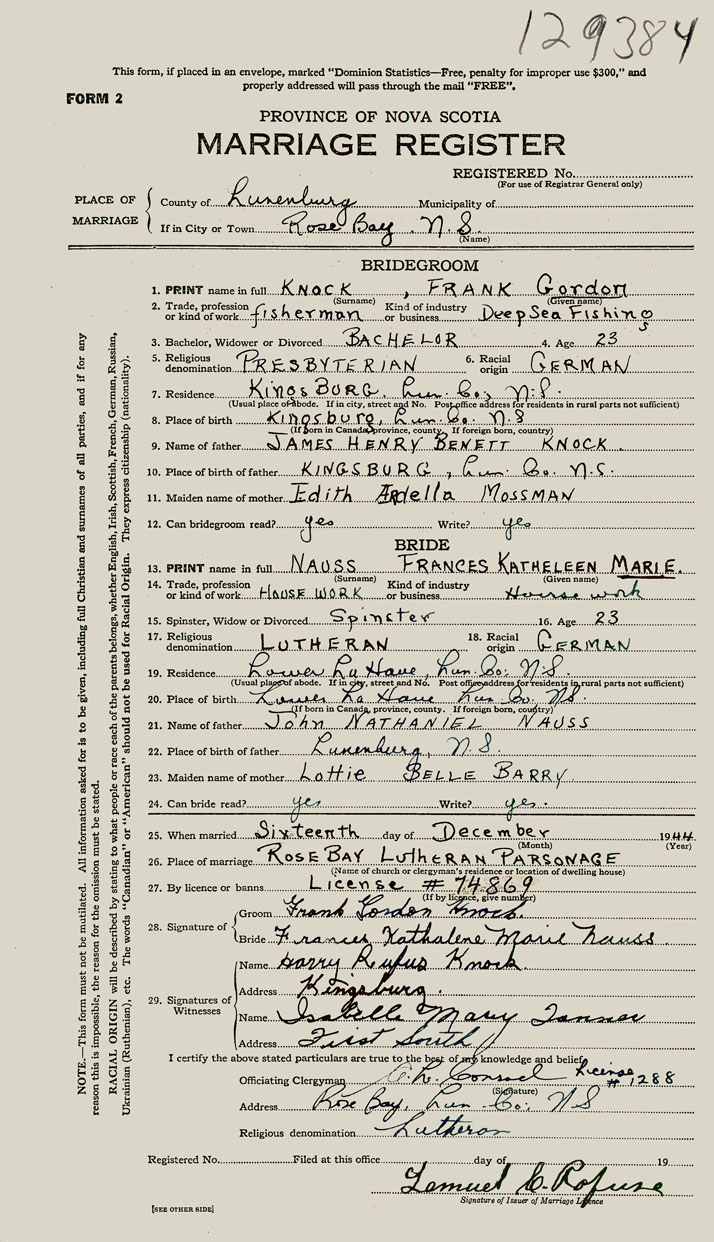 129384
This form, if placed in an envelope, marked "Dominion Statistics—Free, penalty for improper use $300," and
properly addressed will pass through the mail "FREE".
FORM 2
PROVINCE OF NOVA SCOTIA
MARRIAGE REGISTER
REGISTERED No.
(For use of Registrar General only)
PLACE OF MARRIAGE
County of Lunenburg Municipality of
If in City or Town Rose Bay N.S.
(Name)
BRIDEGROOM
1. PRINT name in full KNOCK, FRANK Gordon
(Surname) (Given name)
2. Trade, profession or kind of work fisherman Kind of industry or business Deep Sea Fishing
3. Bachelor, Widower or Divorced BACHELOR 4. Age 23
5. Religious denomination PRESBYTERIAN 6. Racial origin GERMAN
7. Residence KINGSBURG, Lun. Co., N.S.
(Usual place of abode. If in city, street and No. Post office address for residents in rural parts not sufficient)
8. Place of birth Kingsburg, Lun. Co. N.S
(If born in Canada, province, county. If foreign born, country)
9. Name of father JAMES HENRY BENETT KNOCK.
10. Place of birth of father KINGSBURG, Lun. Co. N.S.
11. Maiden name of mother Edith Ardella MOSSMAN
12. Can bridegroom read? yes Write? yes
BRIDE
13. PRINT name in full NAUSS FRANCES KATHELEEN MARIE.
(Surname) (Given name)
14. Trade, profession or kind of work HOUSE WORK Kind of industry or business House work
15. Spinster, Widow or Divorced Spinster 16. Age 23
17. Religious denomination LUTHERAN 18. Racial origin GERMAN
19. Residence Lower La Have, Lun. Co. N.S
(Usual place of abode. If in city, street and No. Post office address for residents in rural parts not sufficient)
20. Place of birth Lower La Have Lun. Co. N.S.
(If born in Canada, province, county. If foreign born, country)
21. Name of father John NATHANIEL NAUSS
22. Place of birth of father Lunenburg, N.S.
23. Maiden name of mother Lottie BELLE BARRY
24. Can bride read? yes Write? yes.
25. When married Sixteenth day of December 1944
(Month) (Year)
26. Place of marriage ROSE BAY LUTHERAN PARSONAGE
(Name of church or clergyman's residence or location of dwelling house)
27. By licence or banns License # 74869
(If by licence, give number)
28. Signature of
Groom Frank Gordon Knock.
Bride Frances Kathalene Marie Nauss.
29. Signatures of Witnesses
Name Harry Rufus Knock
Address Kingsburg.
Name Isabelle Mary Tanner
Address First South
I certify the above stated particulars are true to the best of my knowledge and belief.
Officiating Clergyman Conrad License # 1288
(Signature)
Address Rose Bay, Lun. Co. N.S
Religious denomination Lutheran
Registered No. Filed at this office day of 19
Lemuel C. Rofuse
Signature of Issuer of Marriage Licence
[SEE OTHER SIDE]
NOTE.—This form must not be mutilated. All information asked for is to be given, including full Christian and surnames of all parties, and if for any
reason this is impossible, the reason for the omission must be stated.
RACIAL ORIGIN will be described by stating to what people or race each of the parents belongs, whether English, Irish, Scottish, French, German, Russian,
Ukrainian (Ruthenian), etc. The words "Canadian" or "American" should not be used for Racial Origin. They express citizenship (nationality).